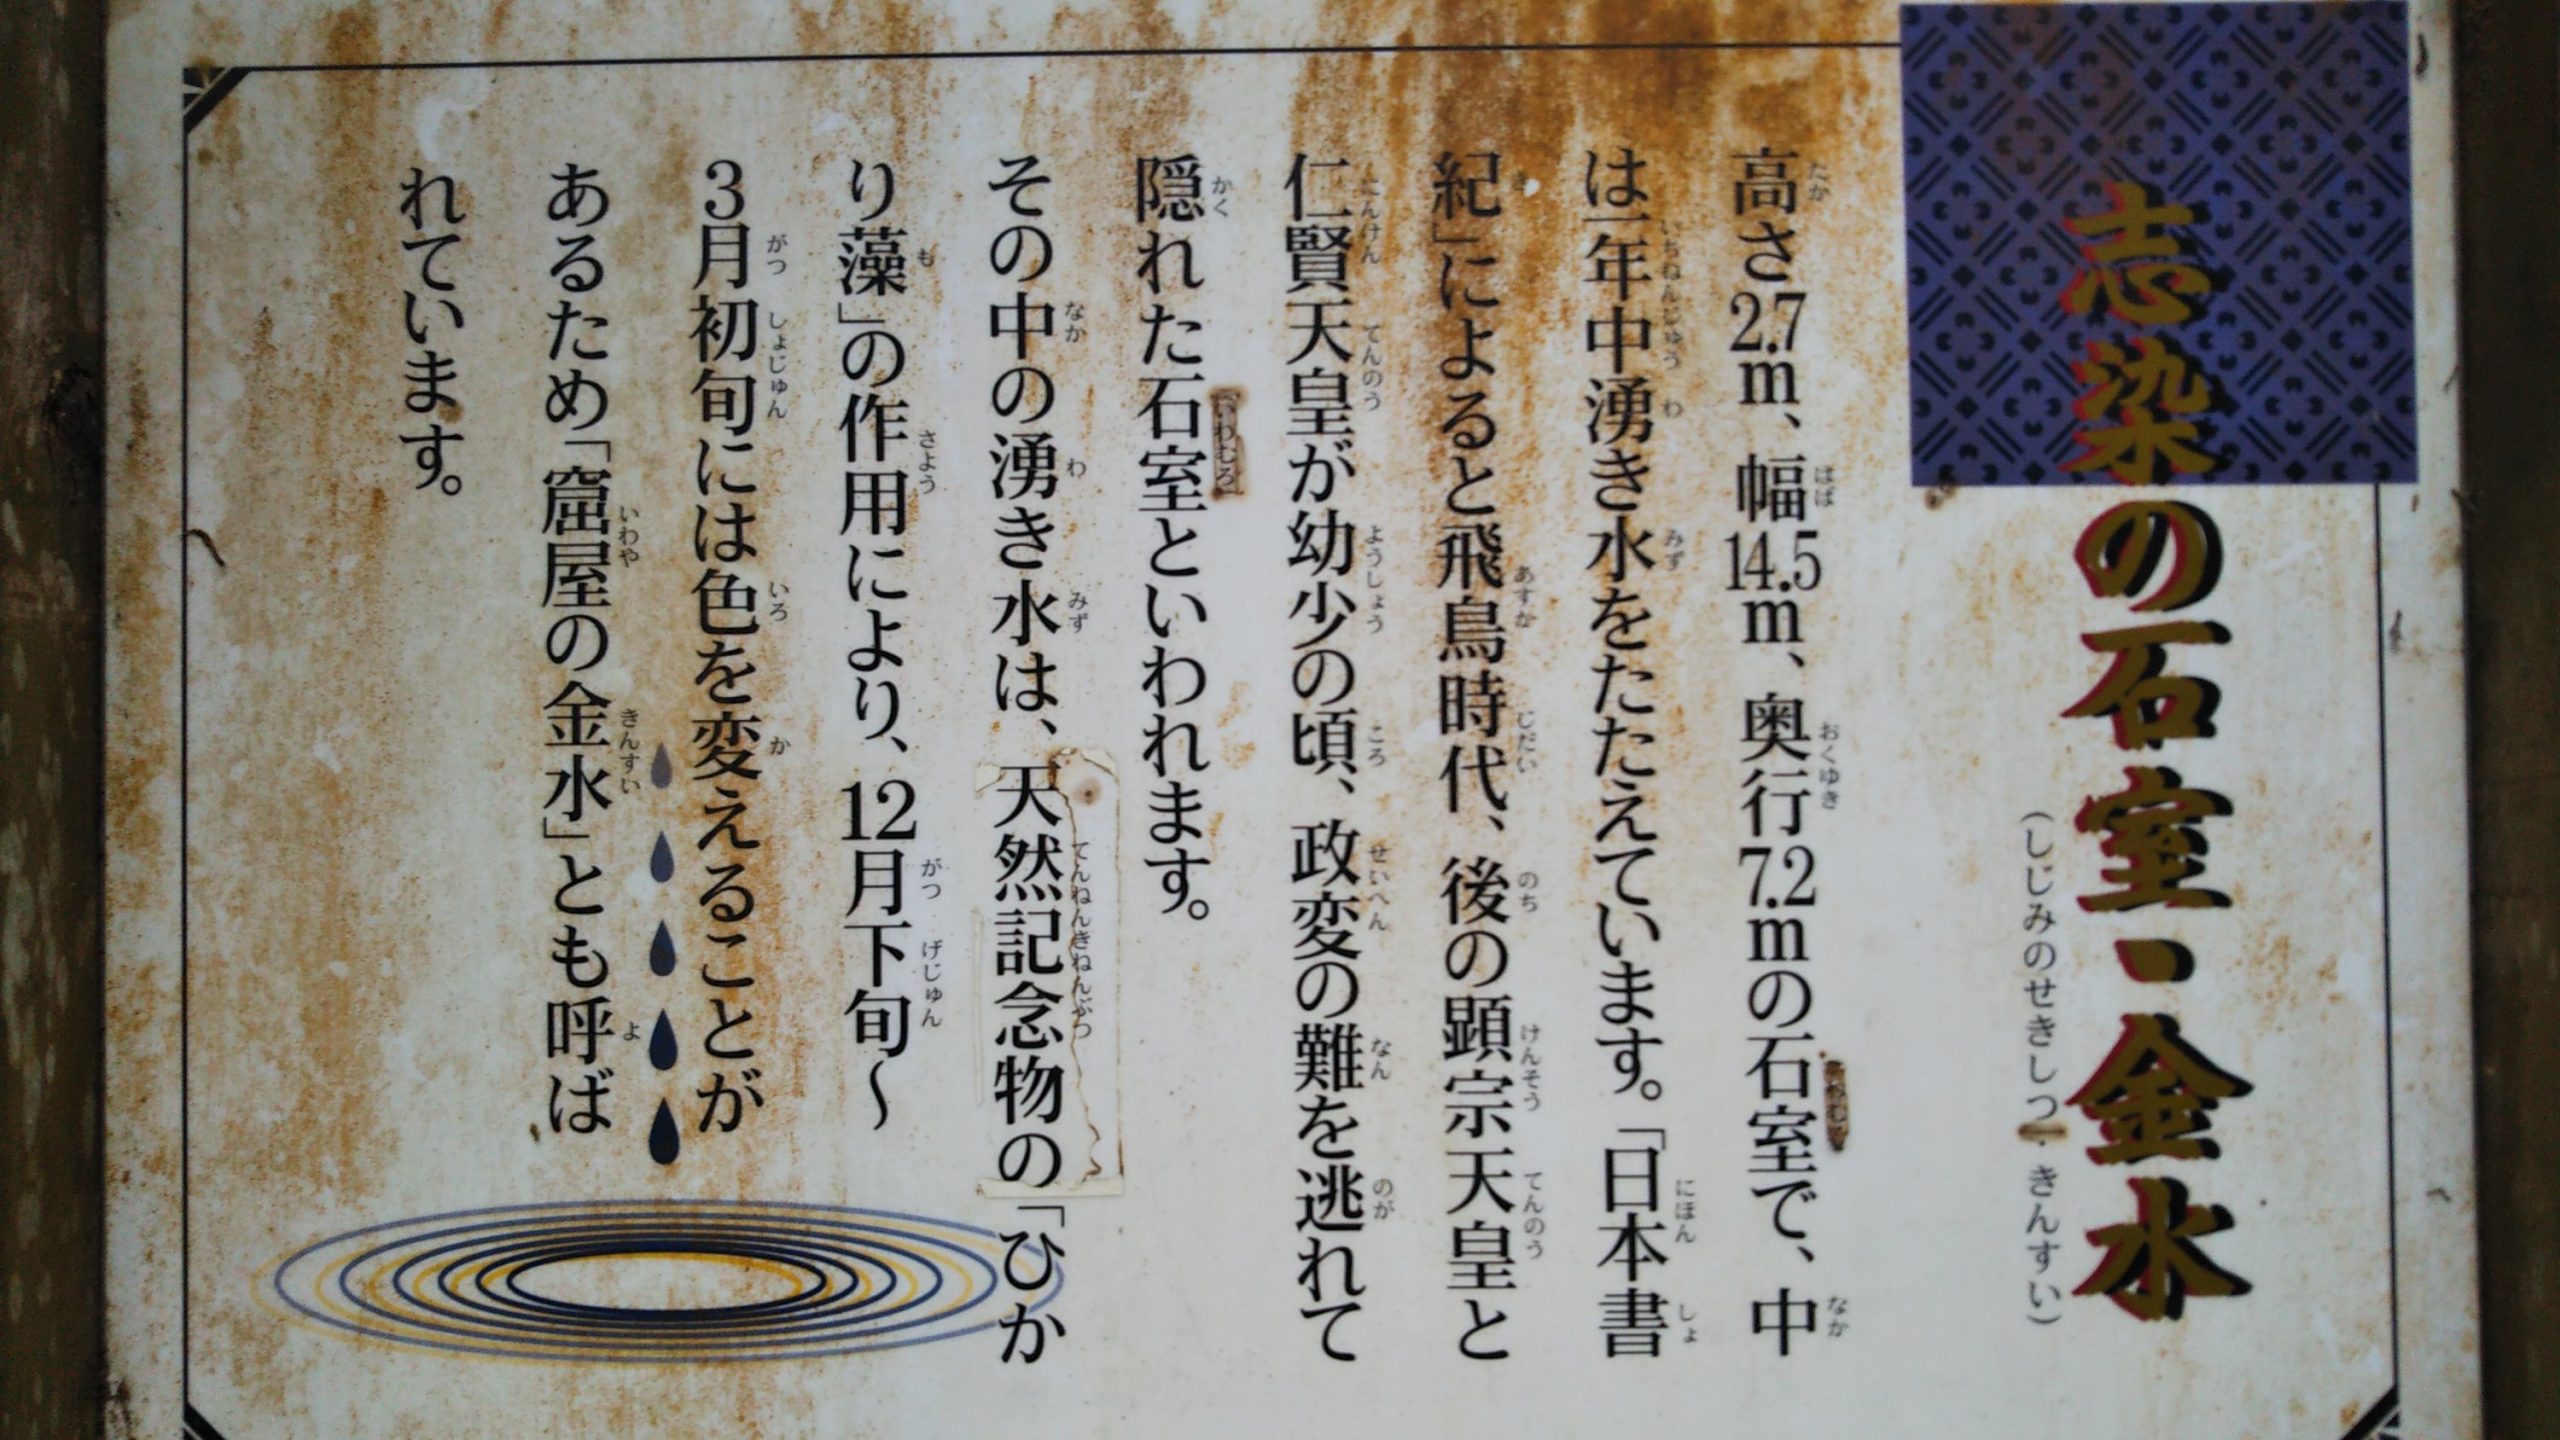 志染の石室・金水
(しじみのせきしつ・きんすい)
高さ2.7m、幅14.5m、奥行7.2mの石室で、中
は一年中湧き水をたたえています。「日本書
紀」によると飛鳥時代、後の顕宗天皇と
仁賢天皇が幼少の頃、政変の難を逃れて
隠れた石室といわれます。
その中の湧き水は、天然記念物の「ひか
り藻」の作用により、12月下旬～
3月初旬には色を変えることが
あるため「窟屋の金水」とも呼ば
れています。